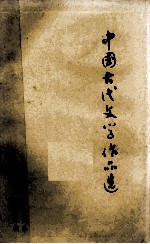 中國古代文学作品選